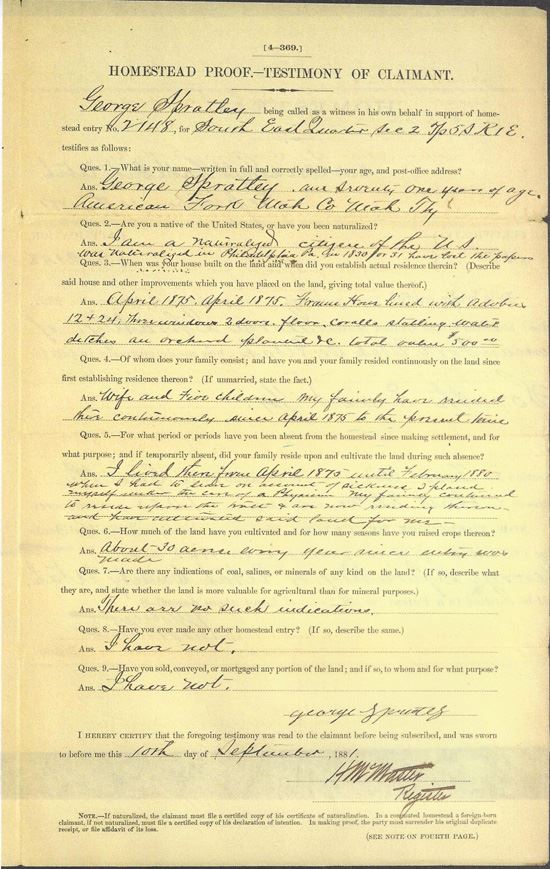 [4—369.]
HOMESTEAD PROOF.—TESTIMONY OF CLAIMANT.
George Spratley being called as a witness in his own behalf in support of home-
stead entry No. 2148, for South East Quarter Sec 2 Tp 5 S R 1 E.
testifies as follows:
Ques. 1.—What is your name—written in full and correctly spelled—your age, and post-office address?
Ans. George Spratley am seventy one years of age,
American Fork Utah Co Utah Ty
Ques. 2.—Are you a native of the United States, or have you been naturalized?
Ans. I am a naturalized citizen of the U S.
Was naturalized in Philadelphia Pa. in 1830 or 31 have lost the papers
Ques. 3.—When was your house built on the land and when did you establish actual residence therein? (Describe
said house and other improvements which you have placed on the land, giving total value thereof.)
Ans. April 1875. April 1875. Frame House lined with Adobes
12 + 24, three windows 2 doors. floor, coralls stabling water
ditches an orchard planted &c. total value $500 00
Ques. 4.—Of whom does your family consist; and have you and your family resided continuously on the land since
first establishing residence thereon? (If unmarried, state the fact.)
Ans. Wife and children My family have resided
there continuously since April 1875 to the present time
Ques. 5.—For what period or periods have you been absent from the homestead since making settlement, and for
what purpose; and if temporarily absent, did your family reside upon and cultivate the land during such absence?
Ans. I lived there from April 1875 until February 1880
when I had to leave on account of sickness I placed
myself under the care of a Physician My family continued
to reside upon the & are now residing thereon
and have cultivated said land for me—
Ques. 6.—How much of the land have you cultivated and for how many seasons have you raised crops thereon?
Ans. About 30 acres every year since entry was
made
Ques. 7.—Are there any indications of coal, salines, or minerals of any kind on the land? (If so, describe what
they are, and state whether the land is more valuable for agricultural than for mineral purposes.)
Ans. There are no such indications.
Ques. 8.—Have you ever made any other homestead entry? (If so, describe the same.)
Ans. I have not.
Ques. 9.—Have you sold, conveyed, or mortgaged any portion of the land; and if so, to whom and for what purpose?
Ans. I have not.
george Spratley
I HEREBY CERTIFY that the foregoing testimony was read to the claimant before being subscribed, and was sworn
to before me this 10th day of September, 1881.
H McMaster
Register
NOTE.—If naturalized, the claimant must file a certified copy of his certificate of naturalization. In a commuted homestead a foreign-born
claimant, if not naturalized, must file a certified copy of his declaration of intention. In making proof, the party must surrender his original duplicate
receipt, or file affidavit of its loss.
(SEE NOTE ON FOURTH PAGE.)